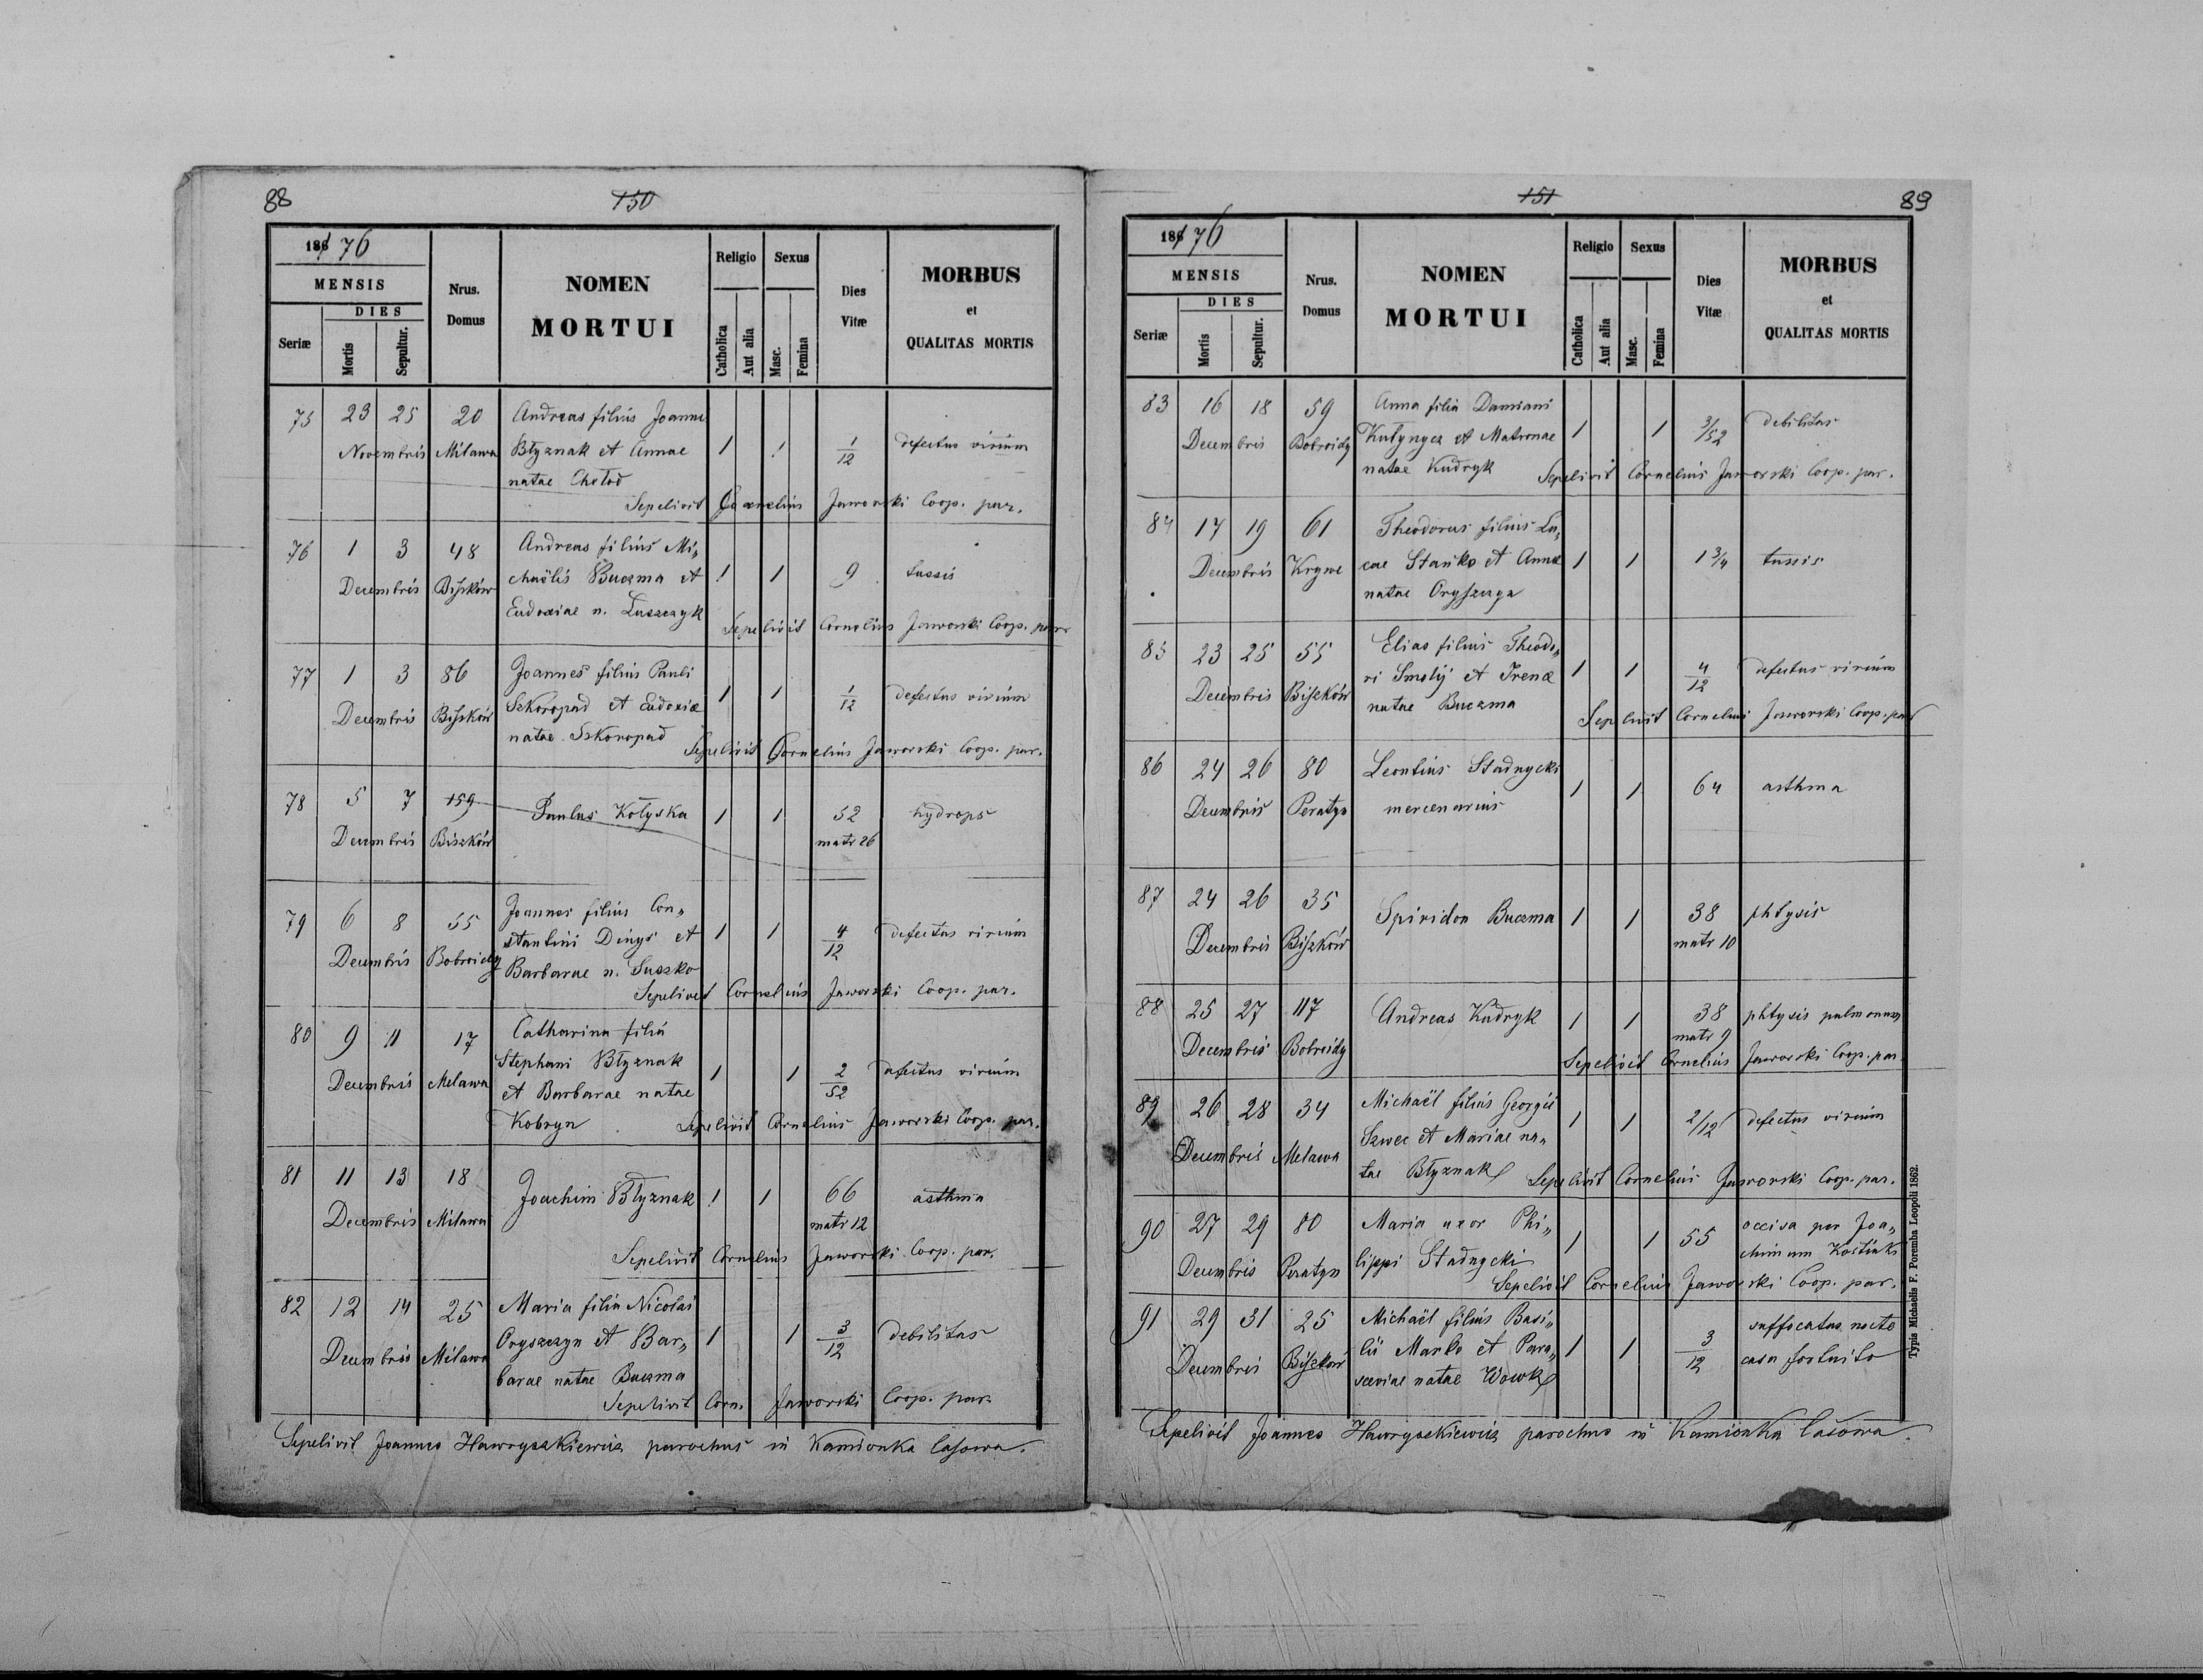 88
150
186 76
MENSIS
DIES
Seriæ
Mortis
Sepultur.
Nrus.
Domus
NOMEN
MORTUI
Religio
Sexus
Catholica
Aut alia
Masc.
Femina
Dies
Vitæ
MORBUS
et
QUALITAS MORTIS
75 23 25 20 Andreas filius Joannis
Novembris Milawa Błyznak et Annae 1 1 1/12 defectus virium
natae Chołod
Sepelivit Cornelius Jaworski Coop. par.
76 1 3 48 Andreas filius Mi„
Decembris Biszków chaëlis Buczma et 1 1 9 tussis
Eudoxiae n. Luszczyk
Sepelivit Cornelius Jaworski Coop. par.
77 1 3 86 Joannes filius Pauli
Decembris Biszków Szkoropad et Eudoxiæ 1 1 1/12 defectus virium
natae Szkoropad
Sepelivit Cornelius Jaworski Coop. par.
78 5 7 159 Paulus Kołyska 1 1 52 hydrops
Decembris Biszków matr 26
79 6 8 55 Joannes filius Con„
Decembris Bobroidy stantini Dinys et 1 1 4/12 defectus virium
Barbarae n. Suszko
Sepelivit Cornelius Jaworski Coop. par.
80 9 11 17 Catharina filia
Decembris Melawa Stephani Błyznak 1 1 2/52 defectus virium
et Barbarae natae
Kobryn Sepelivit Cornelius Jaworski Coop. par.
81 11 13 18 Joachim Błyznak 1 1 66 asthma
Decembris Milawa matr 12
Sepelivit Cornelius Jaworski Coop. par.
82 12 14 25 Maria filia Nicolai
Decembris Milawa Oryszczyn et Bar„ 1 1 3/12 debilitas
barae natae Buczma
Sepelivit Corn. Jaworski Coop. par.
Sepelivit Joannes Hawryszkiewicz parochus in Kamionka lasowa.
151
89
186 76
MENSIS
DIES
Seriæ
Mortis
Sepultur.
Nrus.
Domus
NOMEN
MORTUI
Religio
Sexus
Catholica
Aut alia
Masc.
Femina
Dies
Vitæ
MORBUS
et
QUALITAS MORTIS
83 16 18 59 Anna filia Damiani
Decembris Bobroidy Kułynycz et Matronae 1 1 3/52 debilitas
natae Kudryk
Sepelivit Cornelius Jaworski Coop. par.
84 17 19 61 Theodorus filius Lu„
Decembris Krywe cae Stańko et Annæ 1 1 1 3/4 tussis
natae
85 23 25 55 Elias filius Theodo„
Decembris Biszków ri Smolij et Irenæ 1 1 4/12 defectus virium
natae Buczma
Sepelivit Cornelius Jaworski Coop. par
86 24 26 80 Leontius Stadnycki
Decembris Peratyn mercenarius 1 1 64 asthma
87 24 26 35 Spiridon Buczma 1 1 38 phtysis
Decembris Biszków matr 10
88 25 27 117 Andreas Kudryk 1 1 38 phtysis pulmonum
Decembris Bobroidy matr 9
Sepelivit Cornelius Jaworski Coop. par.
89 26 28 34 Michaël filius Georgii
Decembris Melawa Szwec et Mariae na„ 1 1 2/12 defectus virium
tae Błyznak
Sepelivit Cornelius Jaworski Coop. par.
90 27 29 80 Maria uxor Phi„ 1 1 55 occisa per Joa„
Decembris Peratyn lippi Stadnycki chimum
Sepelivit Cornelius Jaworski Coop. par.
91 29 31 25 Michaël filius Basi„ suffocatus nocte
Decembris Biszków lii Manko et Para„ 1 1 3/12 casu fortuito
sceviae natae Wowk
Sepelivit Joannes Hawryszkiewicz parochus in Kamionka lasowa.
Typis Michaelis F. Poremba Leopoli 1862.